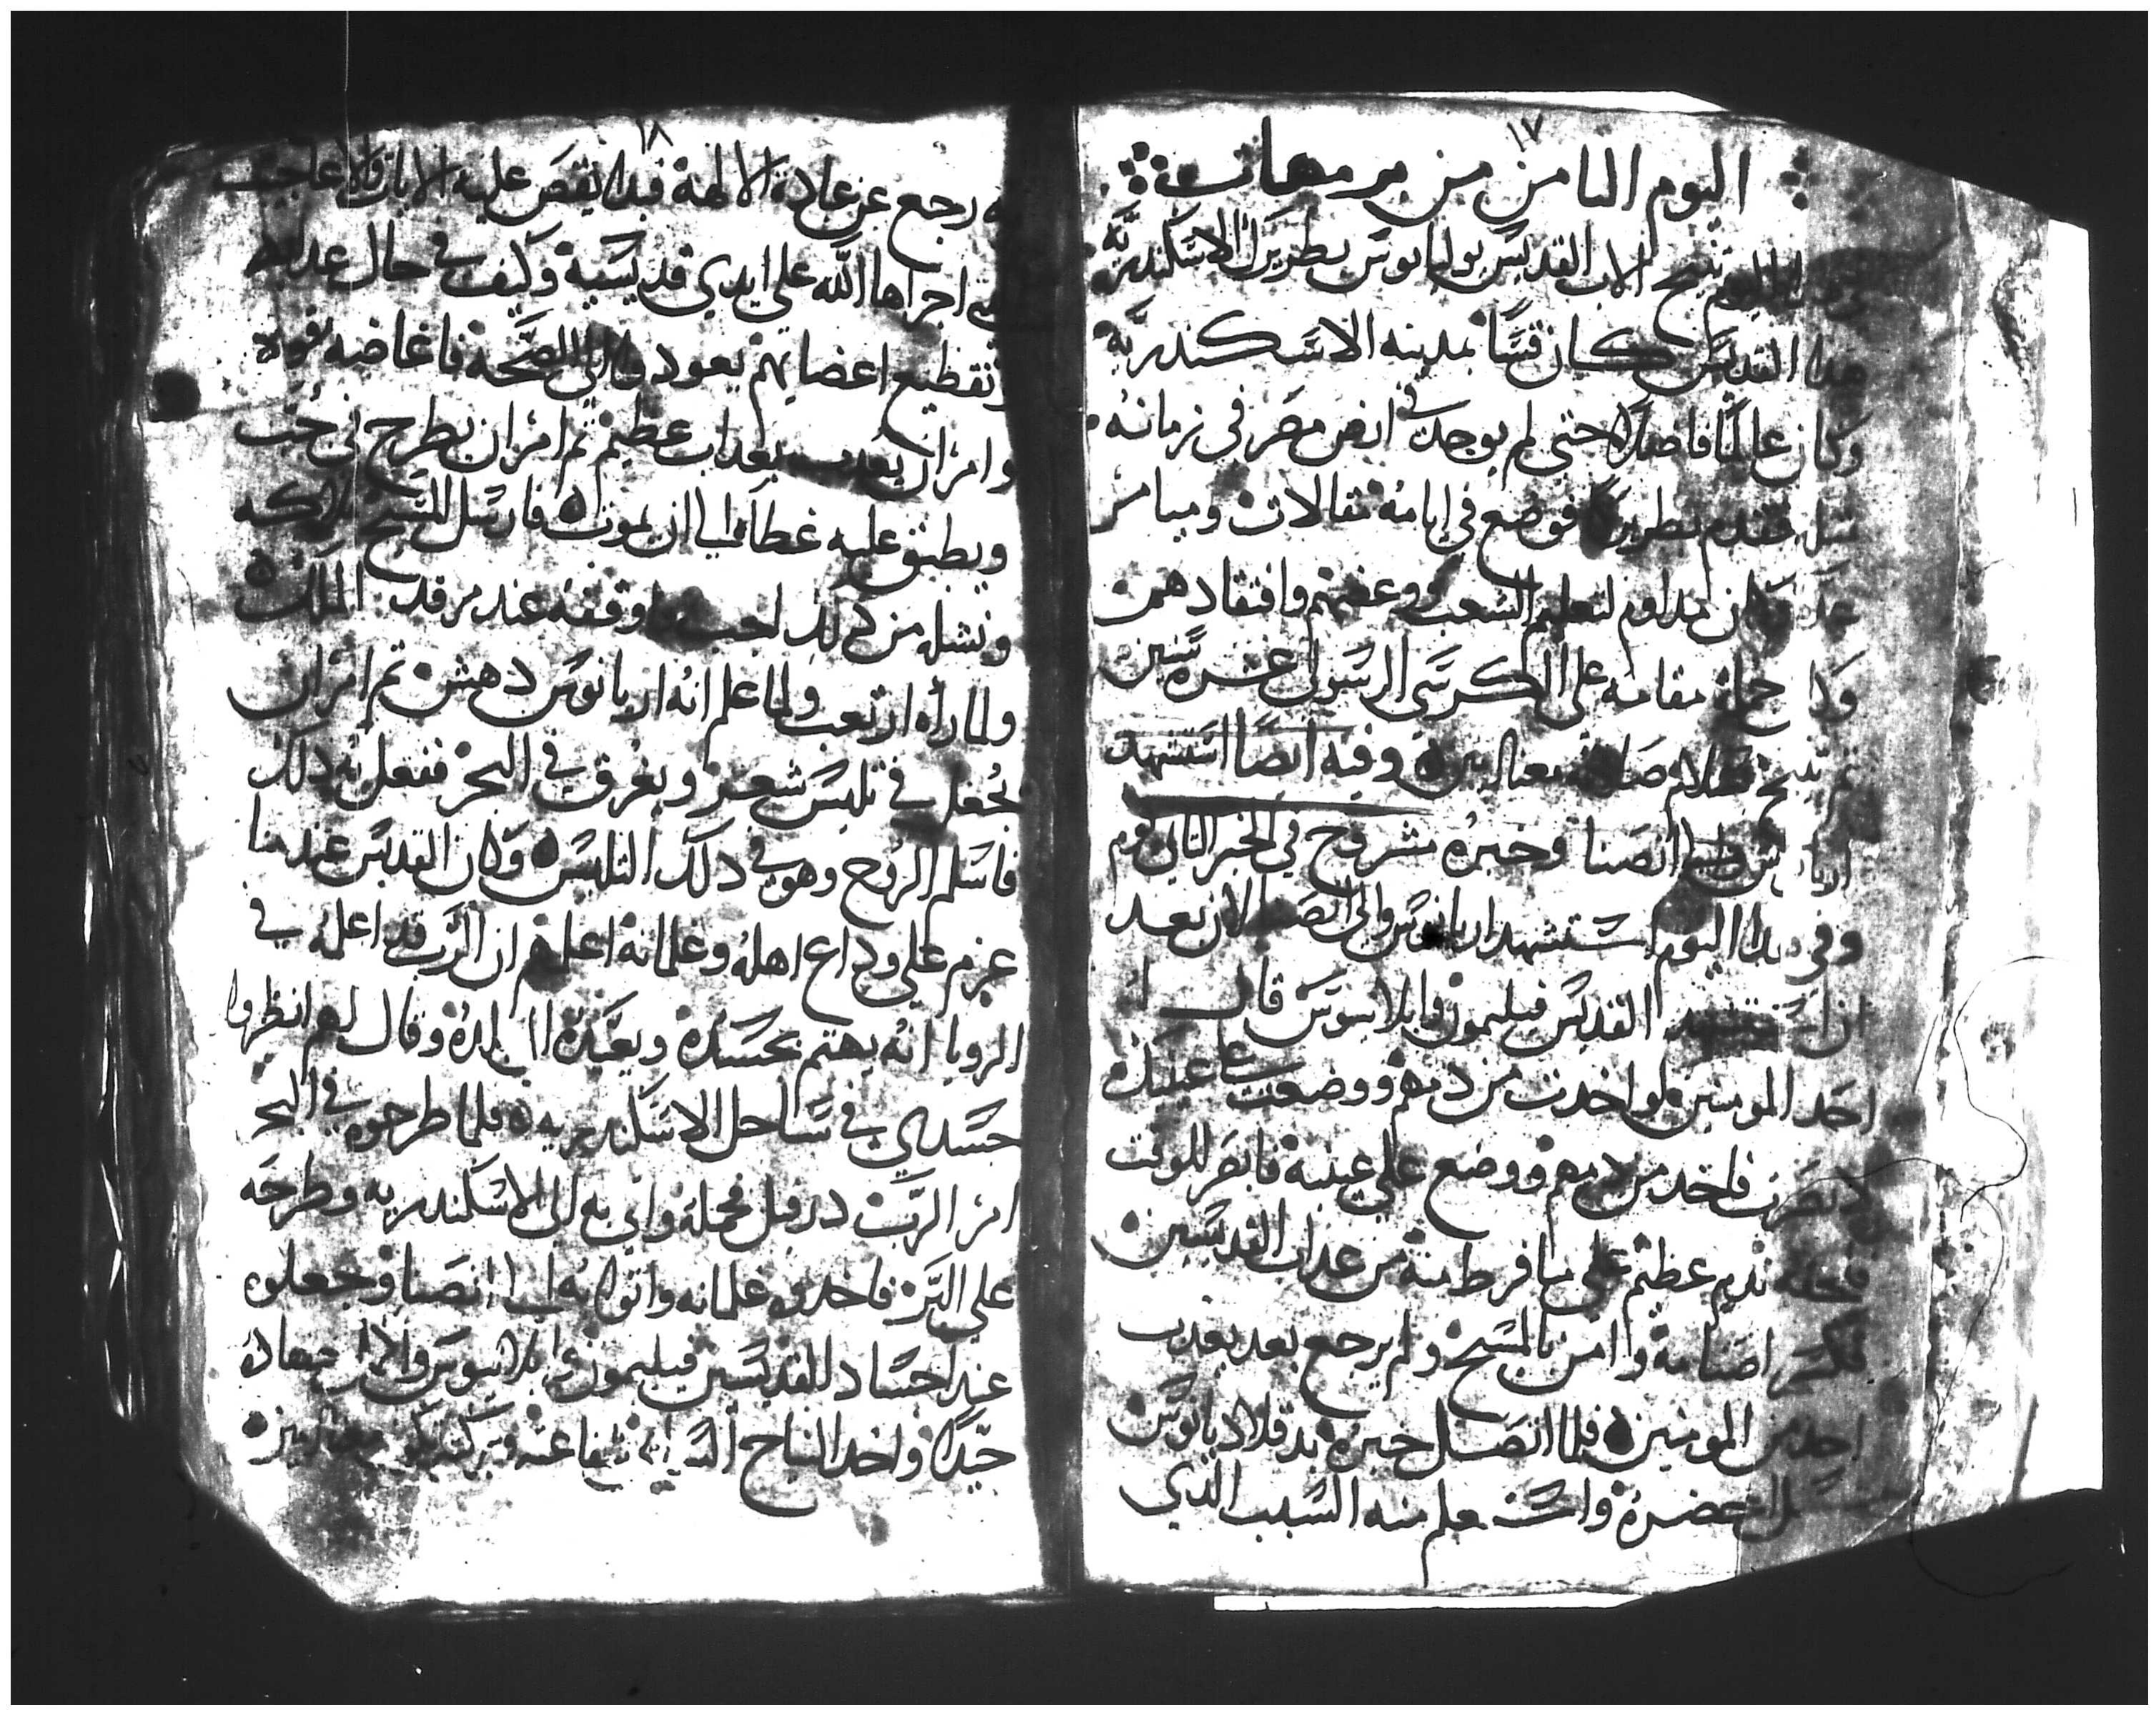 ١٧
اليوم الثامن من برمهات
اليوم تنيح الاب القديس يوليانوس بطريرك الاسكندرية
هدا القديس كان قسا بمدينه الاسكندرية
وكان عالما فاضلا حتى لم يوجد في ارض مصر في زمانه
مثله فقدم بطريركا فوضع في ايامه مقالات وميامر
مداوم لتعليم الشعب وعظهم وافتقادهم
جملة مقامه على الكرسي الرسولي عشرة سنين
تنيح بسلام صلاته معنا امين وفيه ايضا استشهد
اريانوس والي انصنا وخبره مشروح في الخبر التالي
وفي هدا اليوم استشهد اريانوس والي انصنا لان بعد
ان القديس فيليمون وابلانيوس قال
احد المومنين لو اخدت من دمهم ووضعت على عينيك
لابصرت فاخد من دمهم ووضع على عينيه فابصر للوقت
ندم عظيم على ما فرط منه من عداب القديسين
فكسر اصنامه وامن بالمسيح ولم يرجع بعد يعدب
احد من المومنين فلما اتصل خبره بدقلاديانوس
احضره واستعلم منه السبب الذي
١٨
رجع عن عبادة الالهة فبدا يقص عليه الايات والاعاجيب
التي اجراها الله على ايدي قديسيه وكيف في حال عدابهم
وتقطيع اعضايهم يعودوا الى الصحه فاغاضه قوله
وامر ان يعدب بعداب عظيم ثم امر ان يطرح في جب
ويطبق عليه غطا الى ان يموت فارسل المسيح ملاكه
ونشله من دلك الجب واوقفه عند مرقد الملك
ولما رأه ارتعب ولما علم انه اريانوس دهش ثم امر ان
يجعل في تليس شعر ويغرق في البحر ففعل به دلك
فاسلم الروح وهو في دلك التليس وكان القديس عندما
عزم على وداع اهله وغلمانه اعلمهم ان الرب قد اعلمه في
الرويا انه يهتم بجسده ويعيده الى بلده وقال لهم انظروا
جسدي في ساحل الاسكندريه فلما طرحوه في البحر
امر الرب درفيل فحمله واتى به الى الاسكندريه وطرحه
على البر فاخدوه غلمانه واتوا به الى انصنا وجعلوه
عند اجساد القديسين فيليمون وابلانيوس
جيدا واخد التاج شفاعته